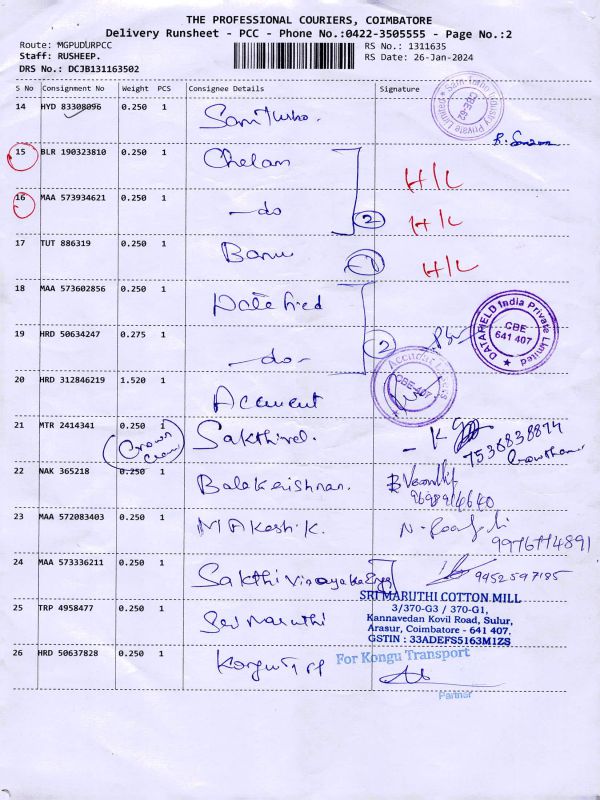 THE PROFESSIONAL COURIERS, COIMBATORE
Delivery Runsheet - PCC - Phone No.:0422-3505555 - Page No.:2
Route: MGPUDURPCC
RS No.: 1311635
Staff: RUSHEEP.
RS Date: 26-Jan-2024
DRS No.: DCJB131163502
S No Consignment No Weight PCS Consignee Details Signature
14 HYD 83308096 0.250 1
15 BLR 190323810 0.250 1 Chelan H/L
16 MAA 573934621 0.250 1 -do 2 H/L
17 TUT 886319 0.250 1 Banu 1 H/L
18 MAA 573602856 0.250 1
DATAFIELD India Private Limited
CBE
641 407
19 HRD 50634247 0.275 1 -do- 2
20 HRD 312846219 1.520 1
CBE-407
21 MTR 2414341 0.250 1 Sakthivel.
(Crown
22 NAK 365218 0.250 1 Balakrishnan.
9698914640
23 MAA 572083403 0.250 1
24 MAA 573336211 0.250 1 Sakthi Vinayaka Engg
9952597185
25 TRP 4958477 0.250 1 Sri Maruthi
SRI MARUTHI COTTON MILL
3/370-G3 / 370-G1,
Kannavedan Kovil Road, Sulur,
Arasur, Coimbatore - 641 407.
GSTIN : 33ADEFS5163M1ZS
26 HRD 50637828 0.250 1
For Kongu Transport
Partner